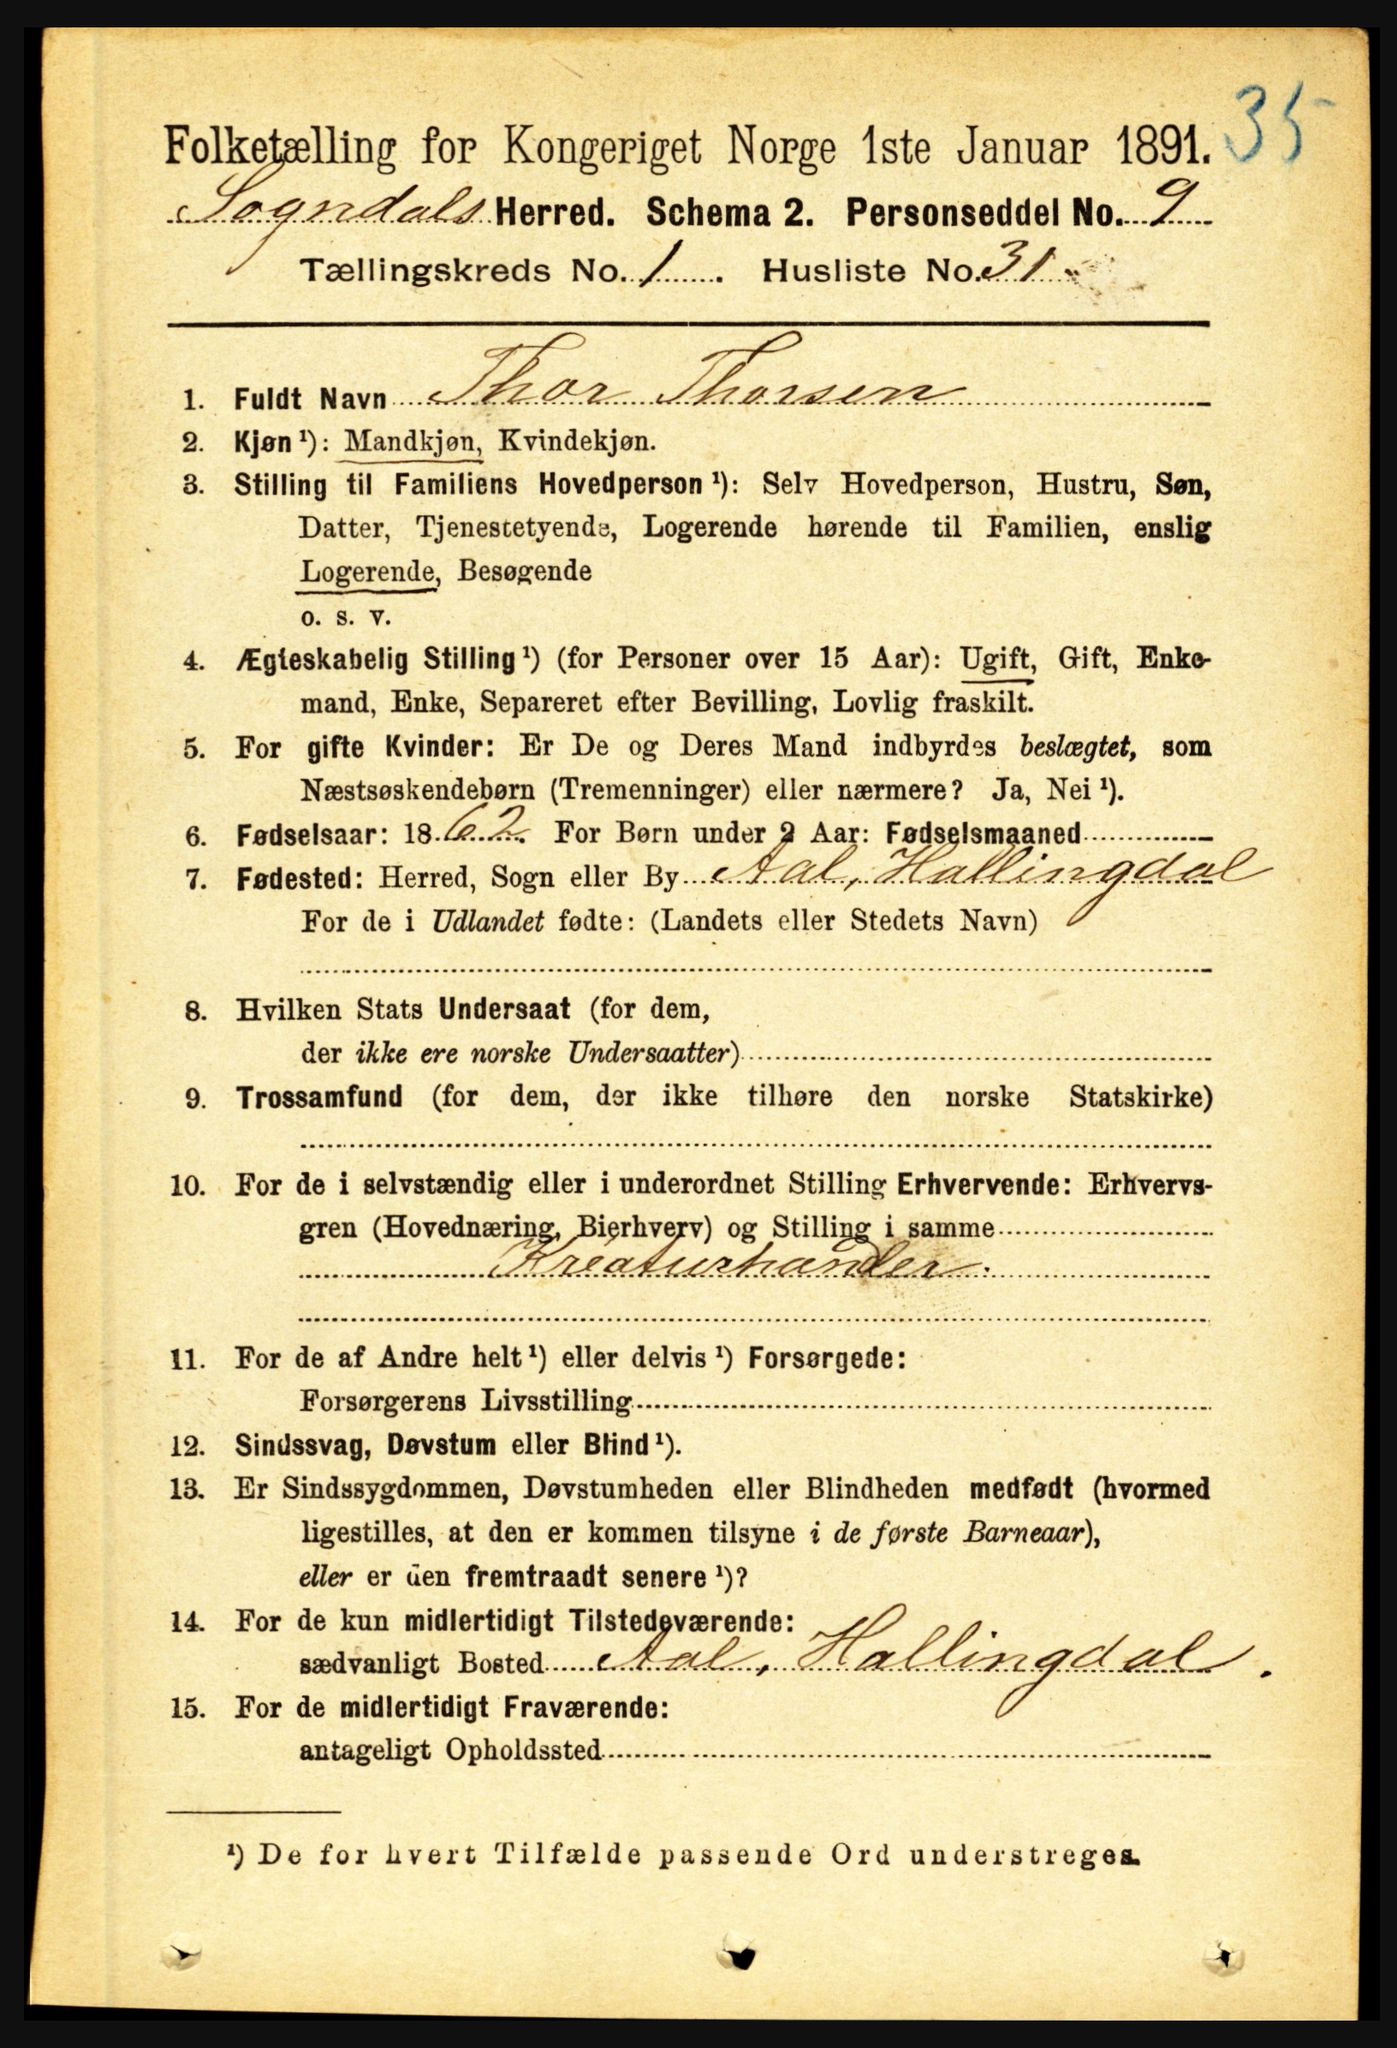 35
Folketælling for Kongeriget Norge 1ste Januar 1891.
Sogndals Herred. Schema 2. Personseddel No. 9
Tællingskreds No. 1. Husliste No. 31
1. Fuldt Navn Thor Thorsen
2. Kjøn ¹): Mandkjøn, Kvindekjøn.
3. Stilling til Familiens Hovedperson ¹): Selv Hovedperson, Hustru, Søn,
Datter, Tjenestetyende, Logerende hørende til Familien, enslig
Logerende, Besøgende
o. s. v.
4. Ægteskabelig Stilling ¹) (for Personer over 15 Aar): Ugift, Gift, Enke-
mand, Enke, Separeret efter Bevilling, Lovlig fraskilt.
5. For gifte Kvinder: Er De og Deres Mand indbyrdes beslægtet, som
Næstsøskendebørn (Tremenninger) eller nærmere? Ja, Nei ¹).
6. Fødselsaar: 1862. For Børn under 2 Aar: Fødselsmaaned
7. Fødested: Herred, Sogn eller By Aal, Hallingdal
For de i Udlandet fødte: (Landets eller Stedets Navn)
8. Hvilken Stats Undersaat (for dem,
der ikke ere norske Undersaatter)
9. Trossamfund (for dem, der ikke tilhøre den norske Statskirke)
10. For de i selvstændig eller i underordnet Stilling Erhvervende: Erhvervs-
gren (Hovednæring, Bierhverv) og Stilling i samme
Kreaturhandler.
11. For de af Andre helt ¹) eller delvis ¹) Forsørgede:
Forsørgerens Livsstilling
12. Sindssvag, Døvstum eller Blind ¹).
13. Er Sindssygdommen, Døvstumheden eller Blindheden medfødt (hvormed
ligestilles, at den er kommen tilsyne i de første Barneaar),
eller er den fremtraadt senere ¹)?
14. For de kun midlertidigt Tilstedeværende:
sædvanligt Bosted Aal, Hallingdal.
15. For de midlertidigt Fraværende:
antageligt Opholdssted
¹) De for hvert Tilfælde passende Ord understreges.